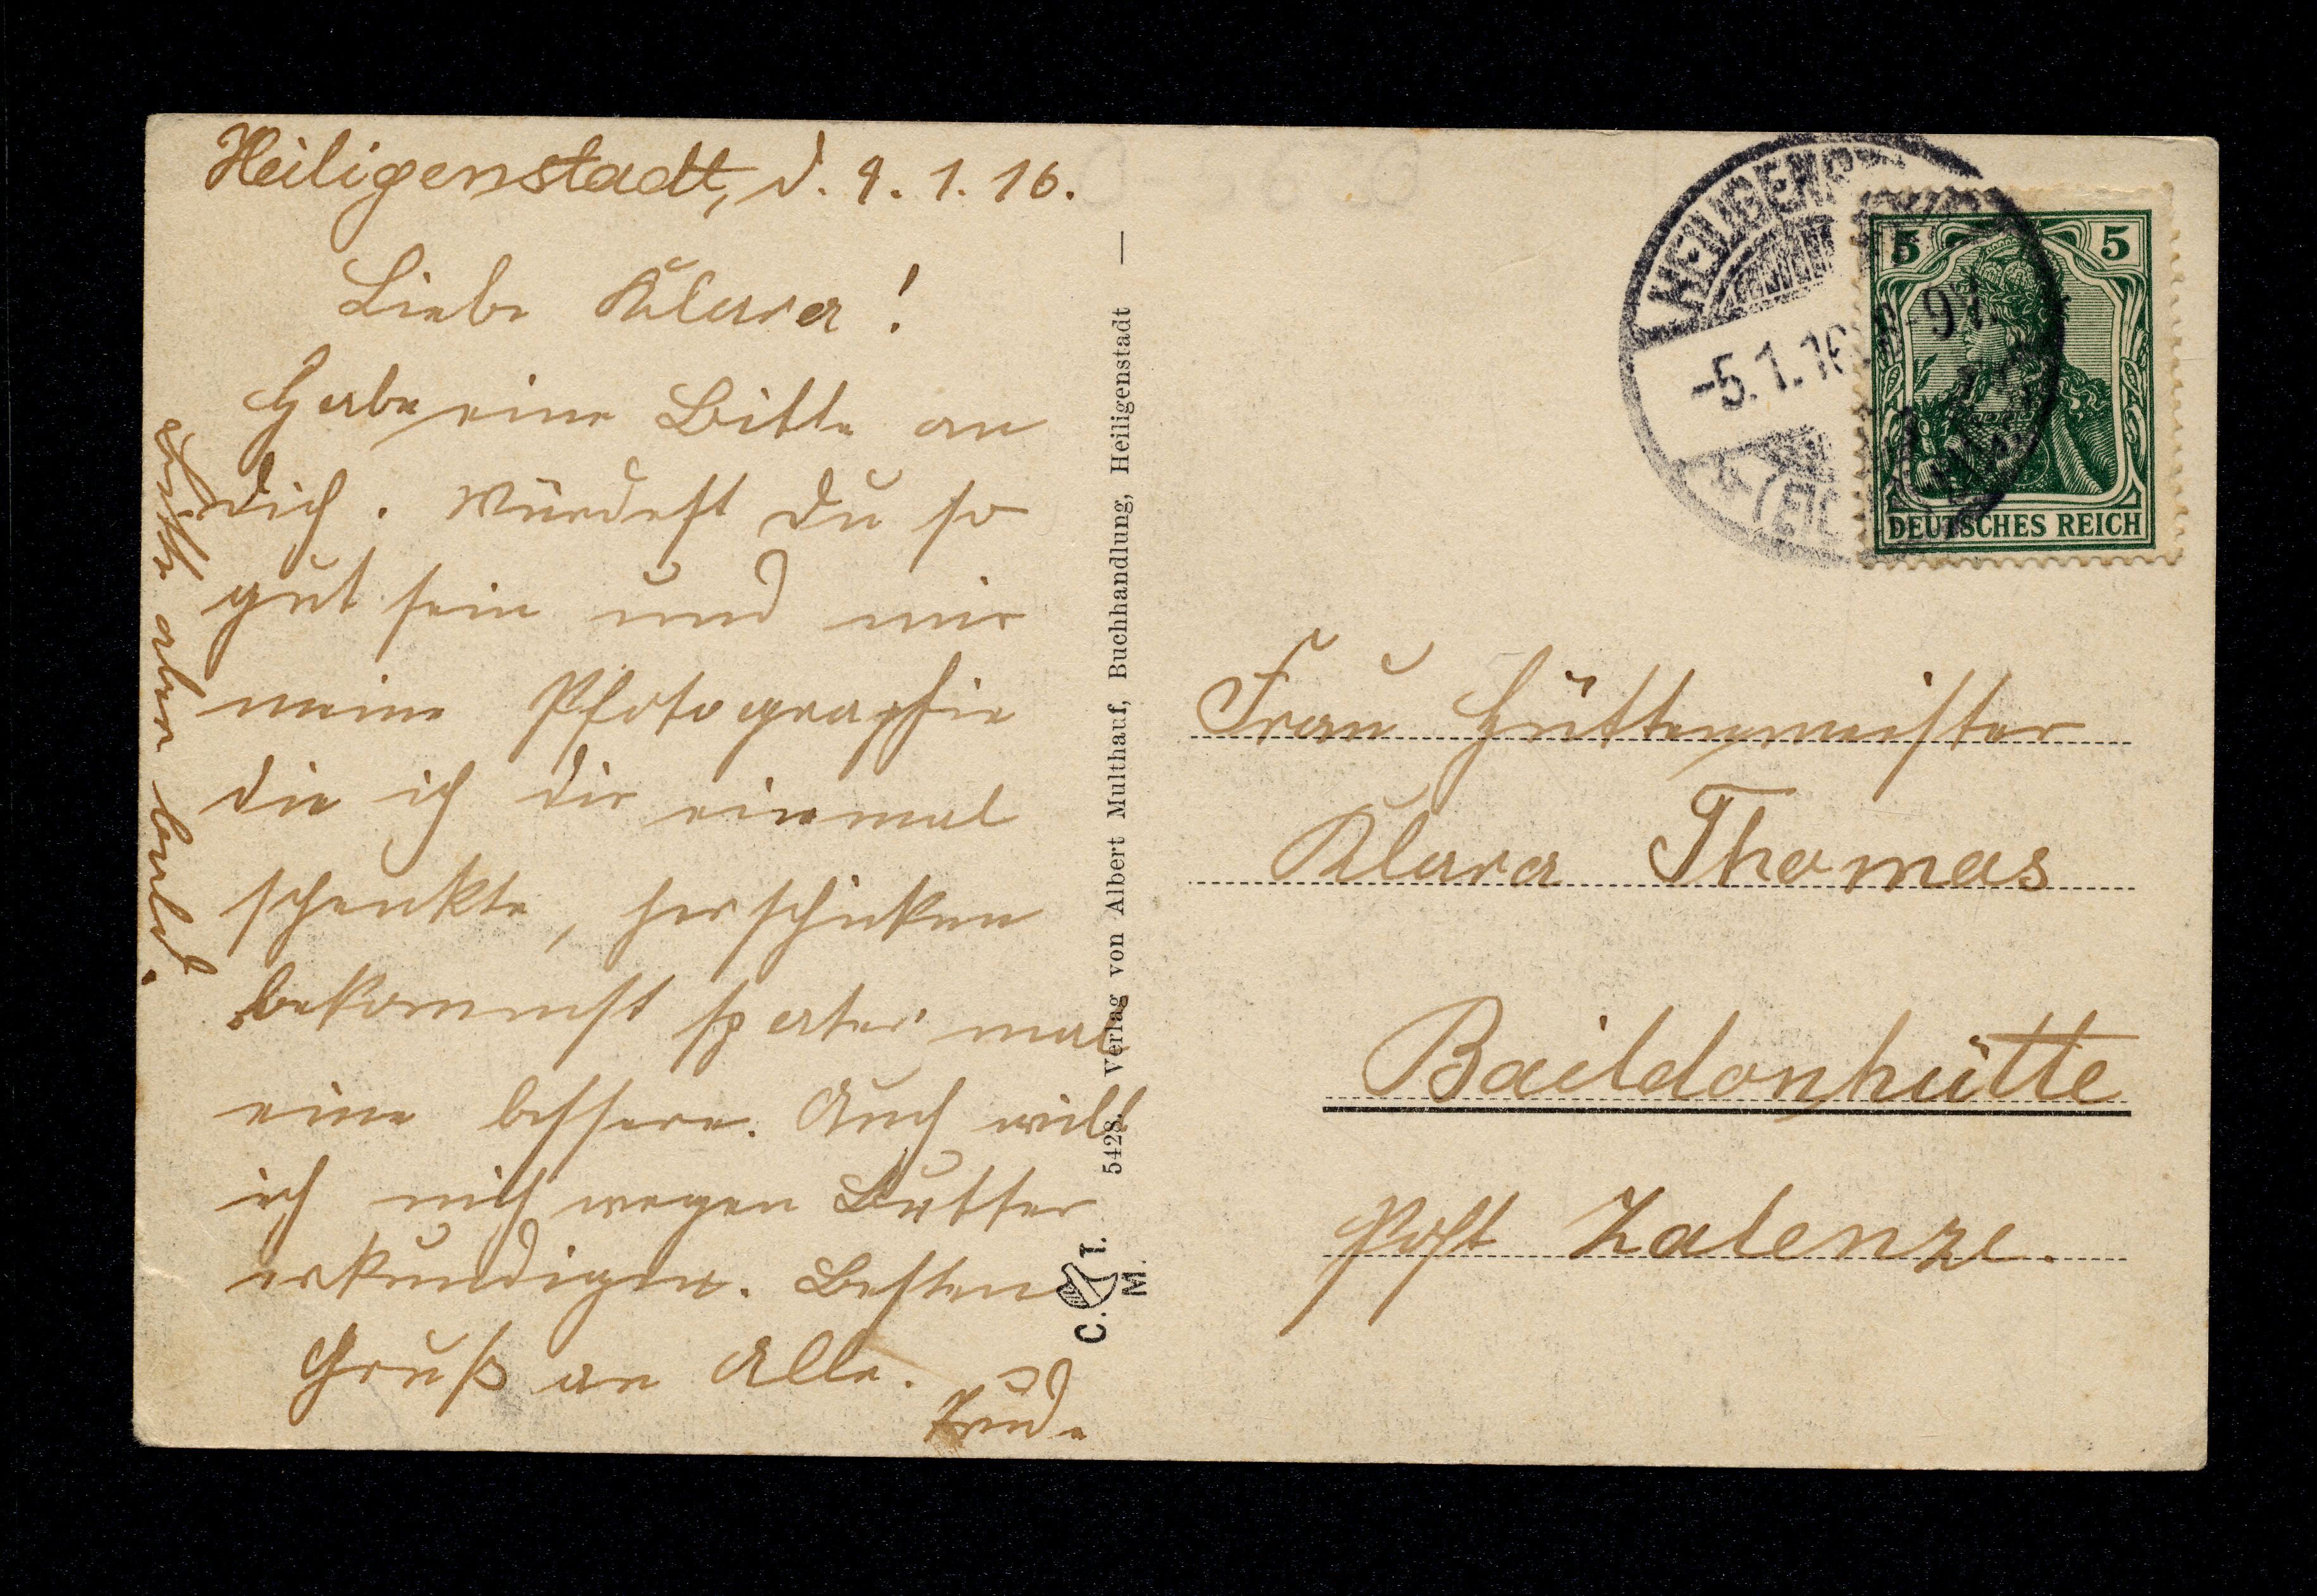 Heiligenstadt, d. 9. 1. 16.
Liebe Klara!
Habe eine Bitte an
dich. Würdest du so
gut sein und mir
meine Photographie
die ich dir einmal
schenkte, herschicken
bekommst spater mal
eine bessere. Auch will
ich mich wegen Butter
erkundigen. Besten
Gruß an Alle.
Trude
Bitte aber bald.
5428. Verlag von Albert Multhauf, Buchhandlung, Heiligenstadt —
C. T.
M.
-5.1.16
5 5
DEUTSCHES REICH
Frau Hüttenmeister
Klara Thomas
Baildonhütte
Post Zalenze.